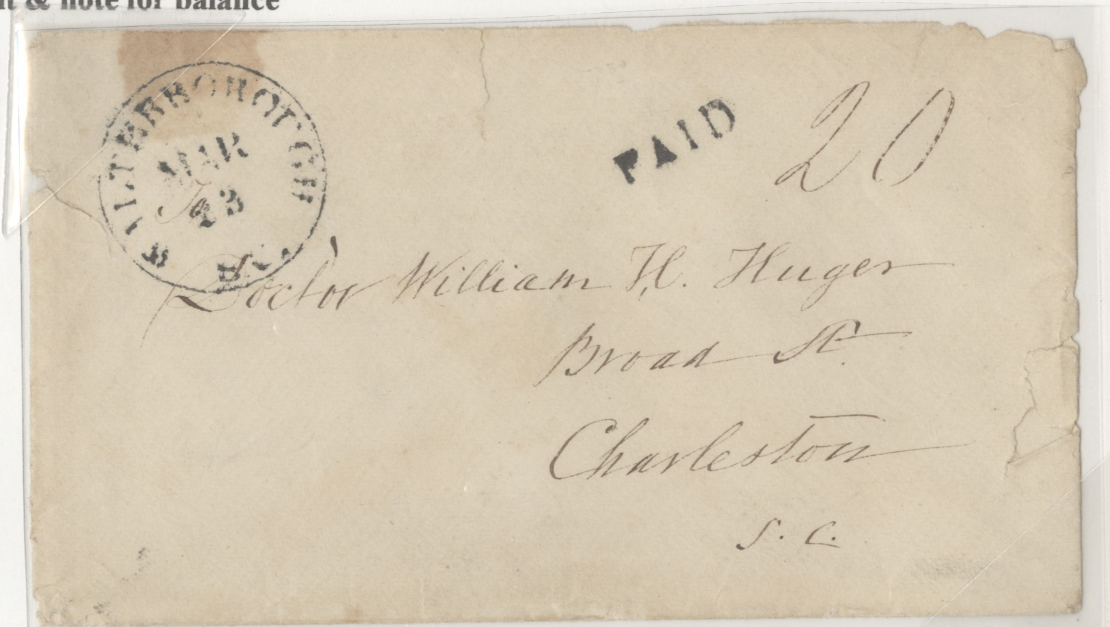 & note for balance
WALTERBOROUGH
MAR
PAID
20
To
Doctor William H. Huger
Broad St.
Charleston
S. C.